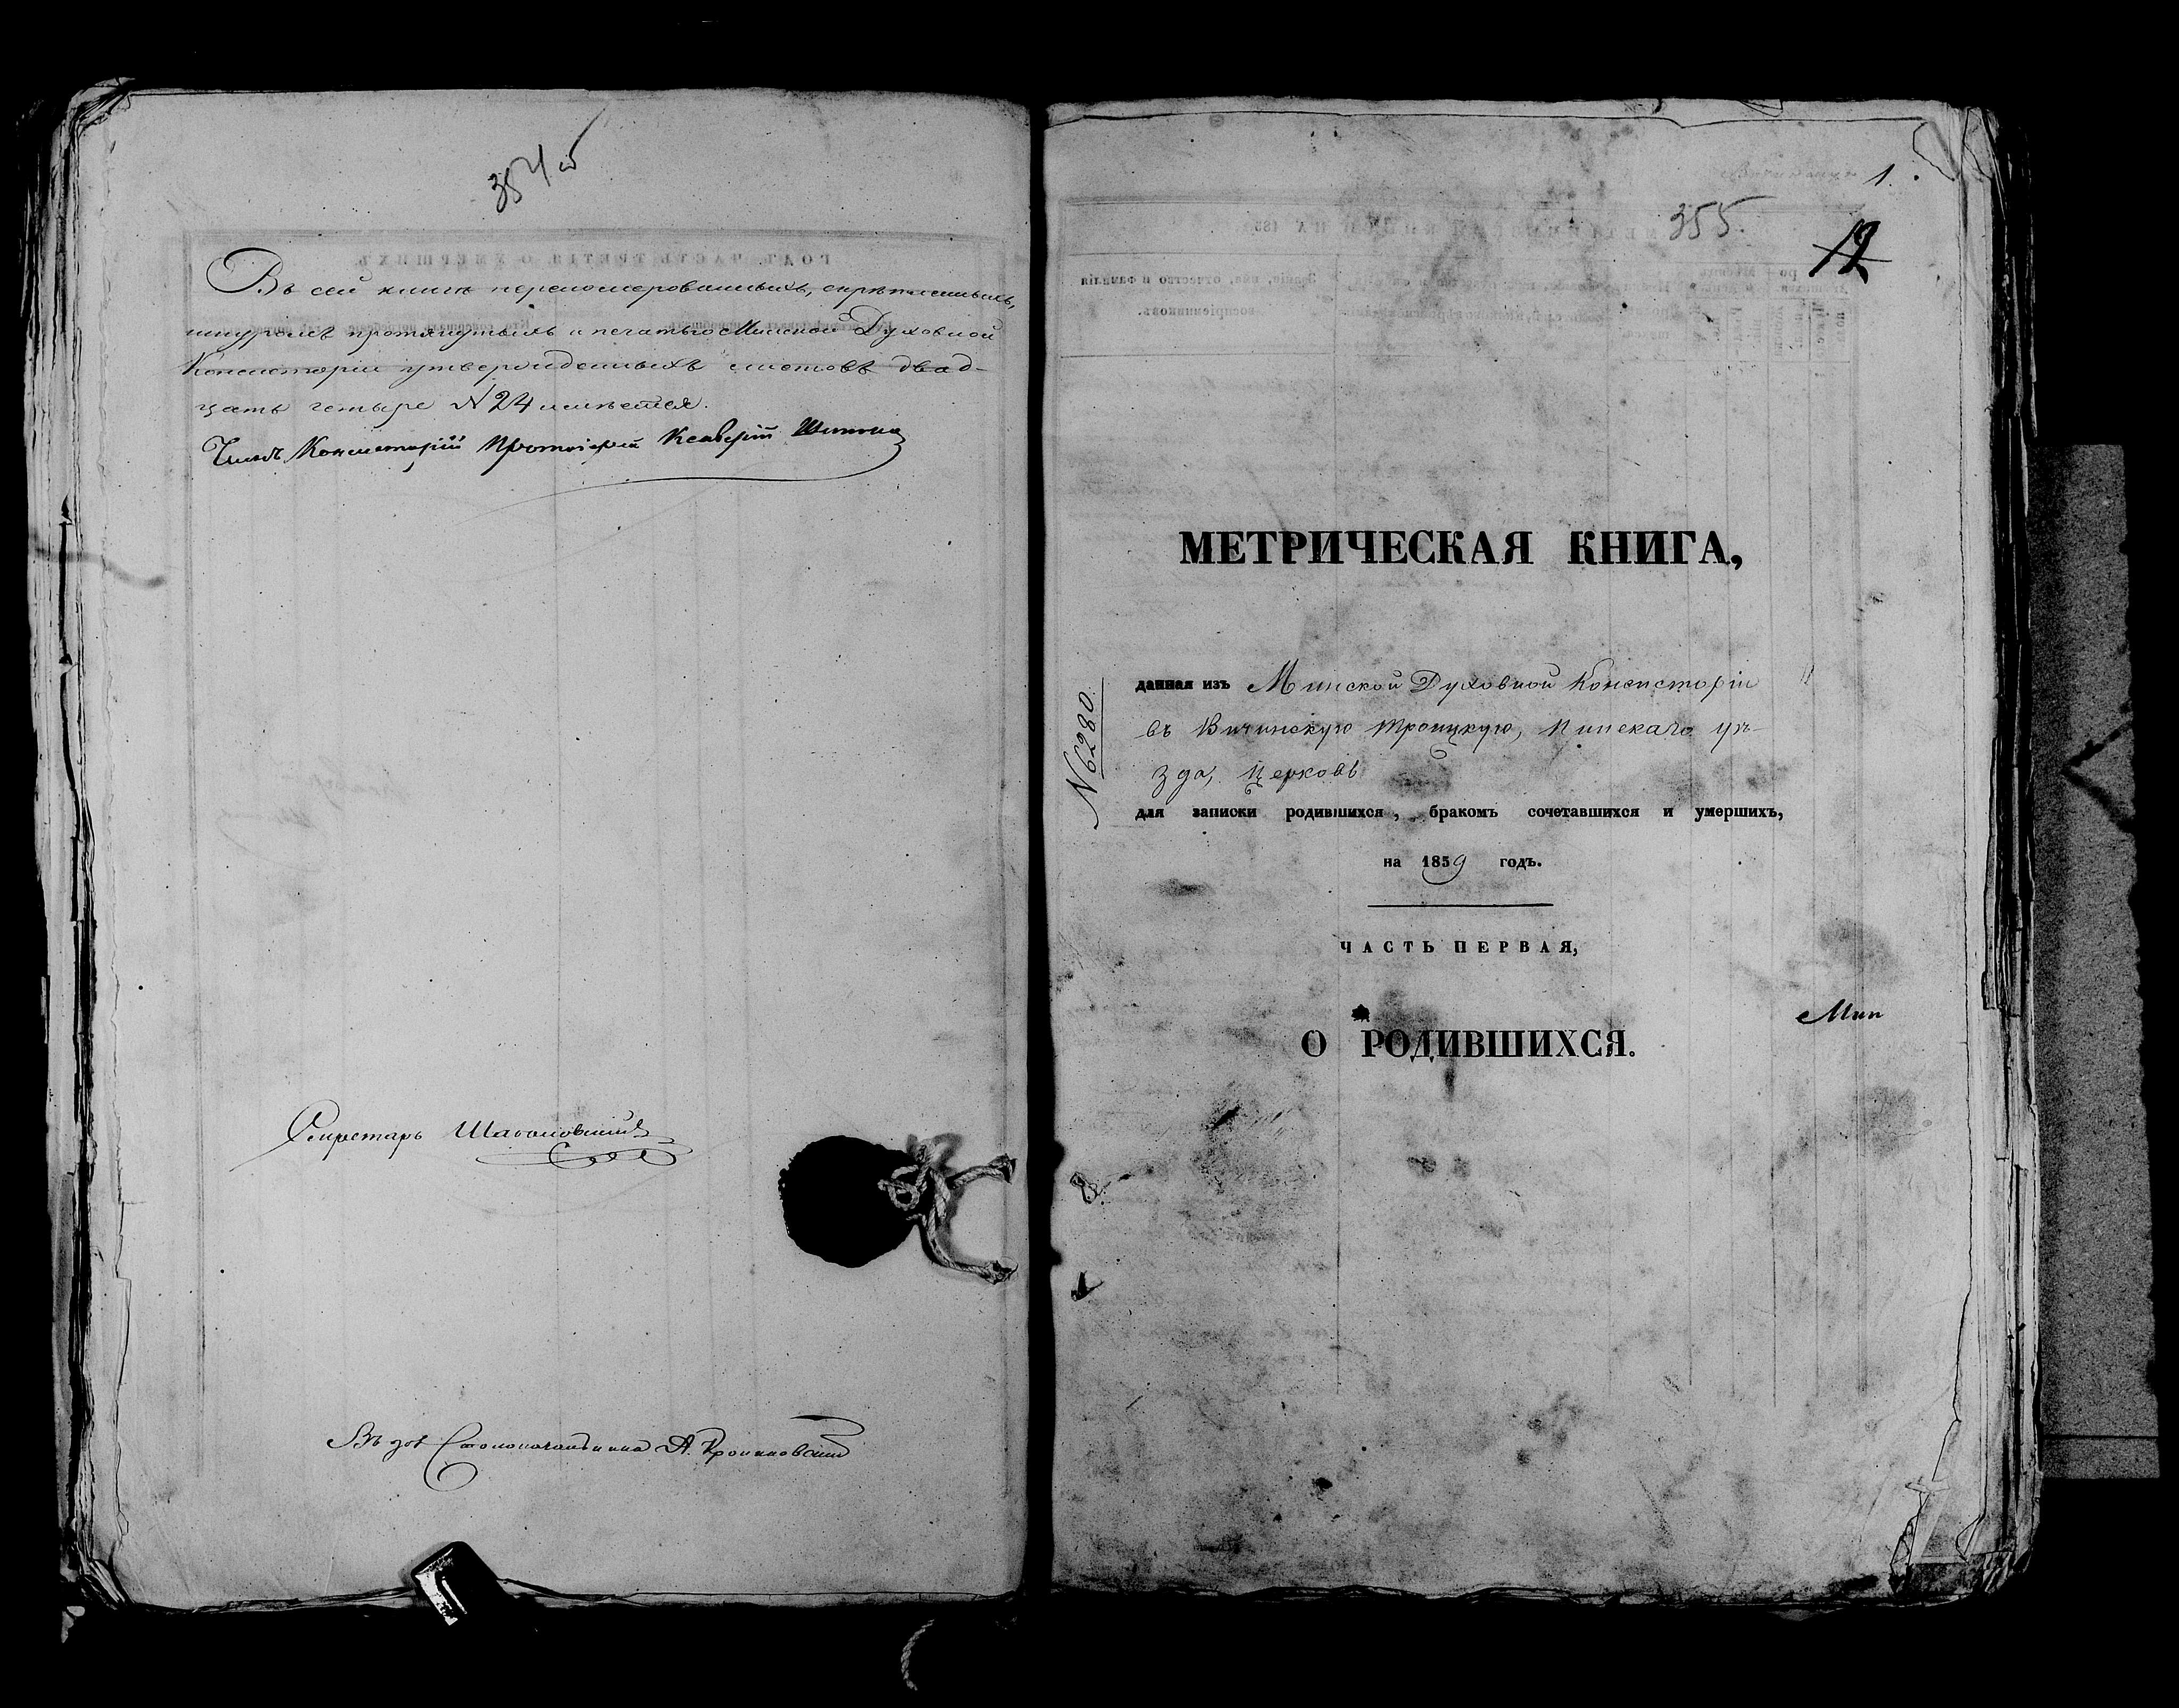 354 об
Въ сей книгѣ перенумерованныхъ, скрѣпленныхъ,
шнуромъ протянутыхъ и печатью Минской Духовной
Консисторіи утвержденныхъ листовъ двад-
цать четыре № 24 имѣется.
Членъ Консисторіи Протоіерей
Секретарь
Столоначальника А.
1.
355.
12
МЕТРИЧЕСКАЯ КНИГА,
данная изъ Минской Духовной Консисторіи
въ Вичинскую Троицкую, Пинскаго уѣ-
зда, Церковь
№ 6280
для записки родившихся, бракомъ сочетавшихся и умершихъ,
на 1859 годъ.
ЧАСТЬ ПЕРВАЯ,
О РОДИВШИХСЯ.
Мин